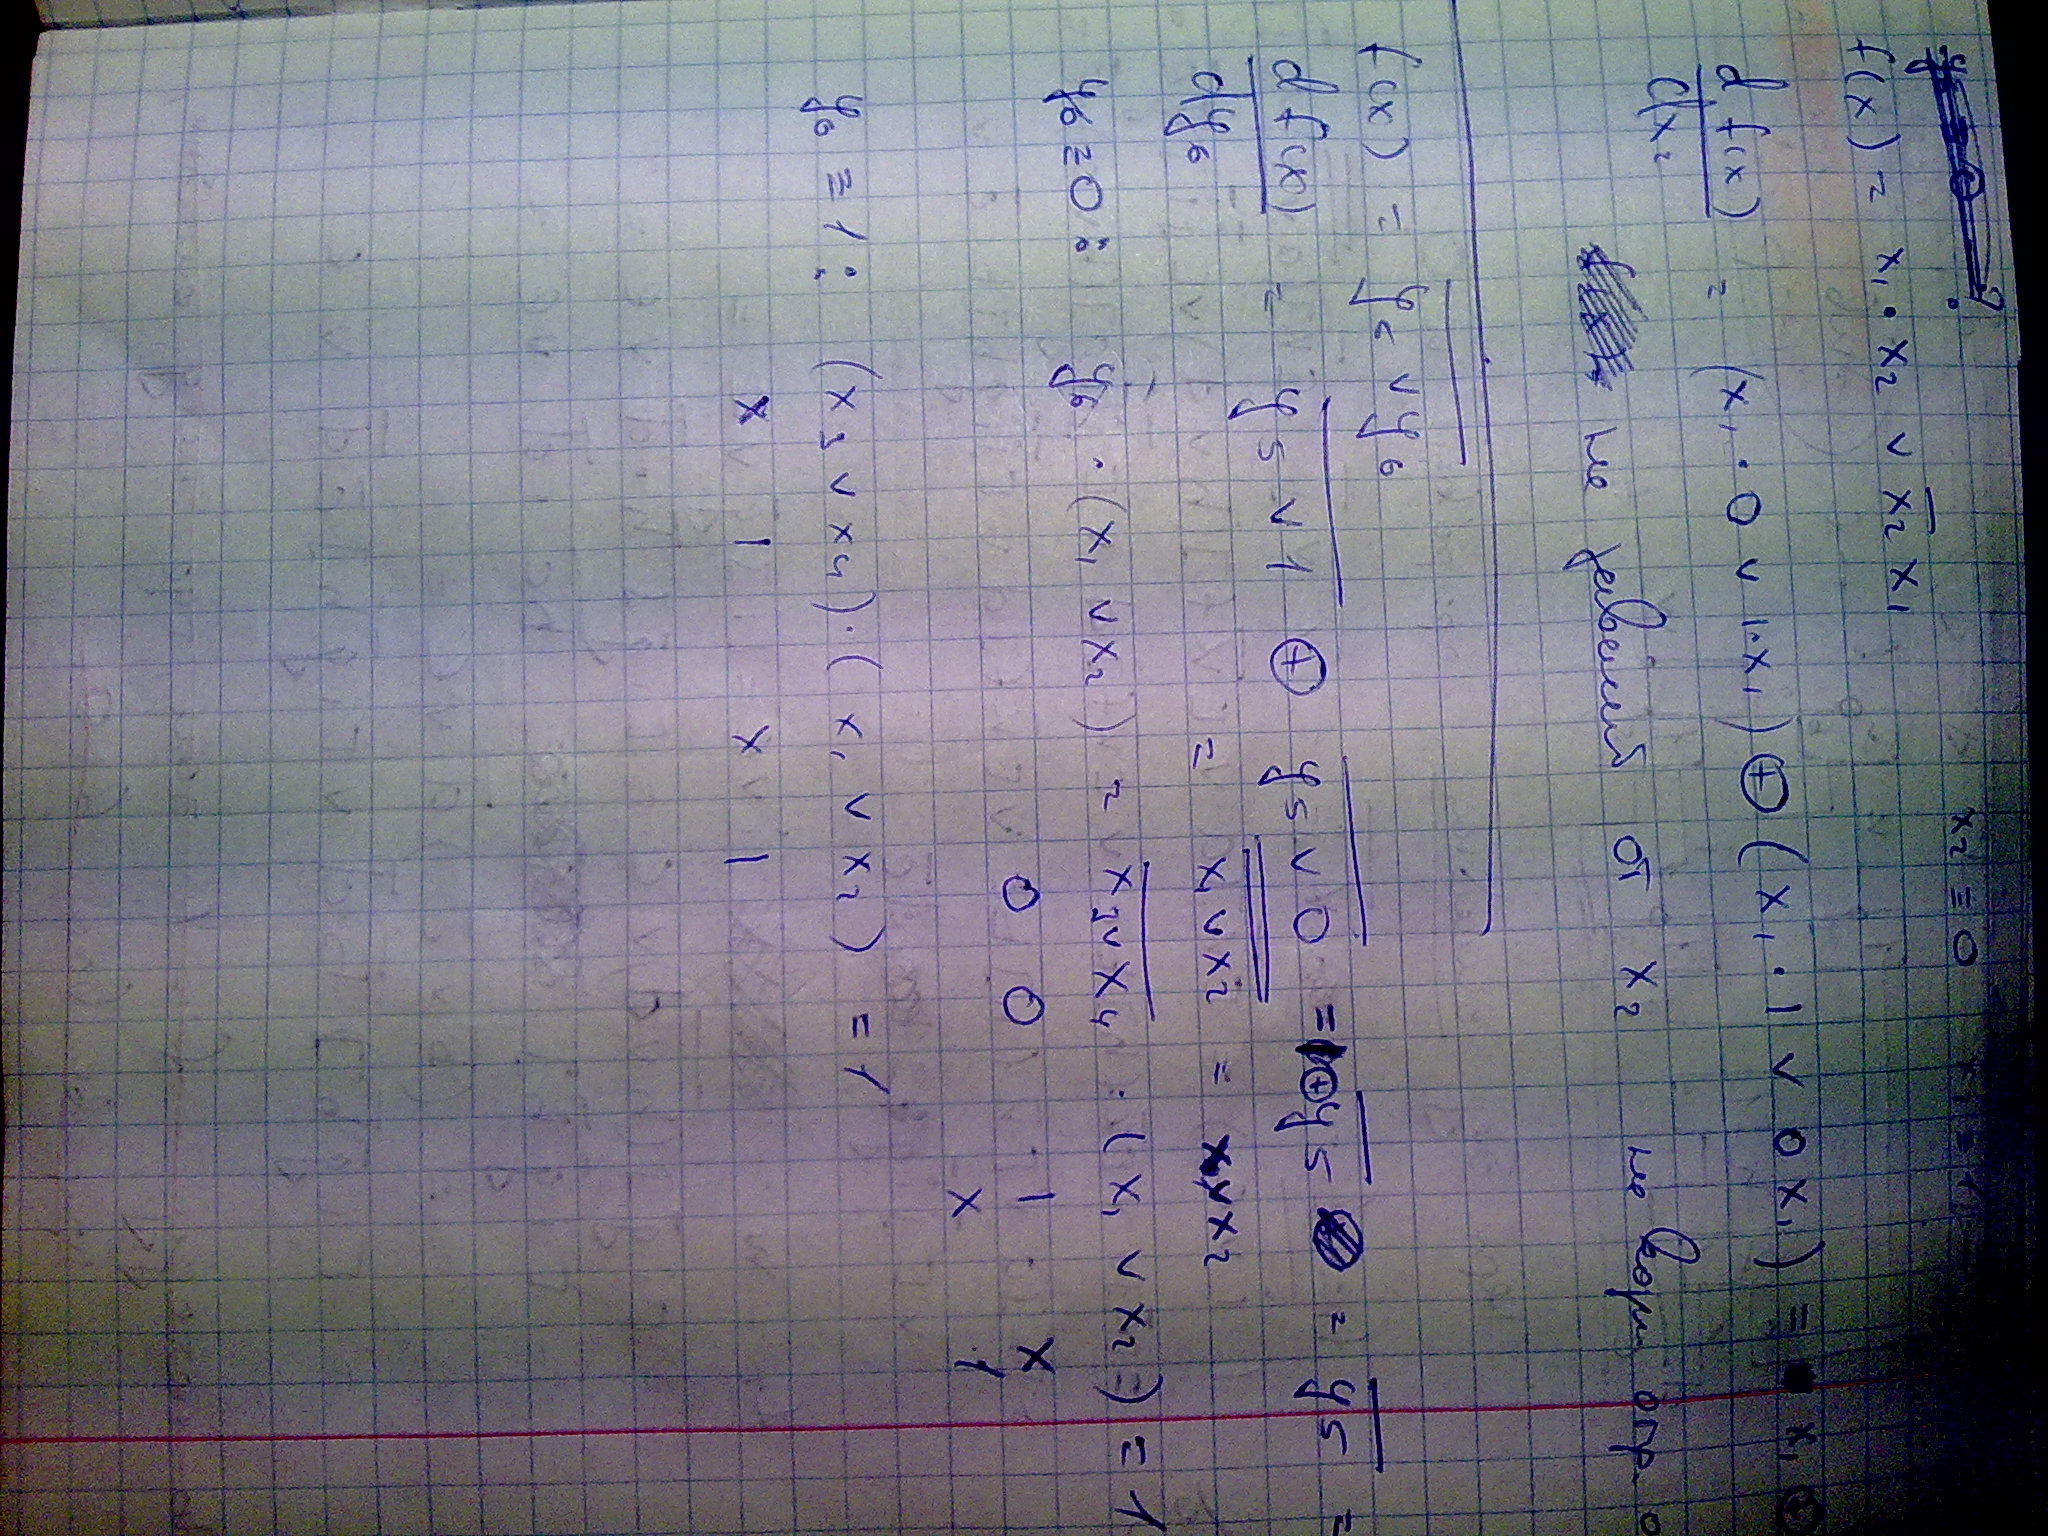 x₂ ≡ 0
f(x) = x₁ · x₂ ∨ x̅₂ x₁
d f(x) / dx₂ = (x₁ · 0 ∨ 1 · x₁) ⊕ (x₁ · 1 ∨ 0 x₁) = x₁ ⊕
не зависит от x₂ не
f(x) = \overline{y₅ ∨ y₆}
d f(x) / dy₆ = \overline{y₅ ∨ 1} ⊕ \overline{y₅ ∨ 0} = ⊕ y̅₅ = y̅₅ =
= \overline{\overline{x₁ ∨ x₂}} = x₁ ∨ x₂
y₆ ≡ 0 : y̅₆ · (x₁ ∨ x₂) = \overline{x₃ ∨ x₄} · (x₁ ∨ x₂) = 1
0 0 1 x
x 1
y₆ ≡ 1 : (x₃ ∨ x₄) · (x₁ ∨ x₂) = 1
x 1 x 1